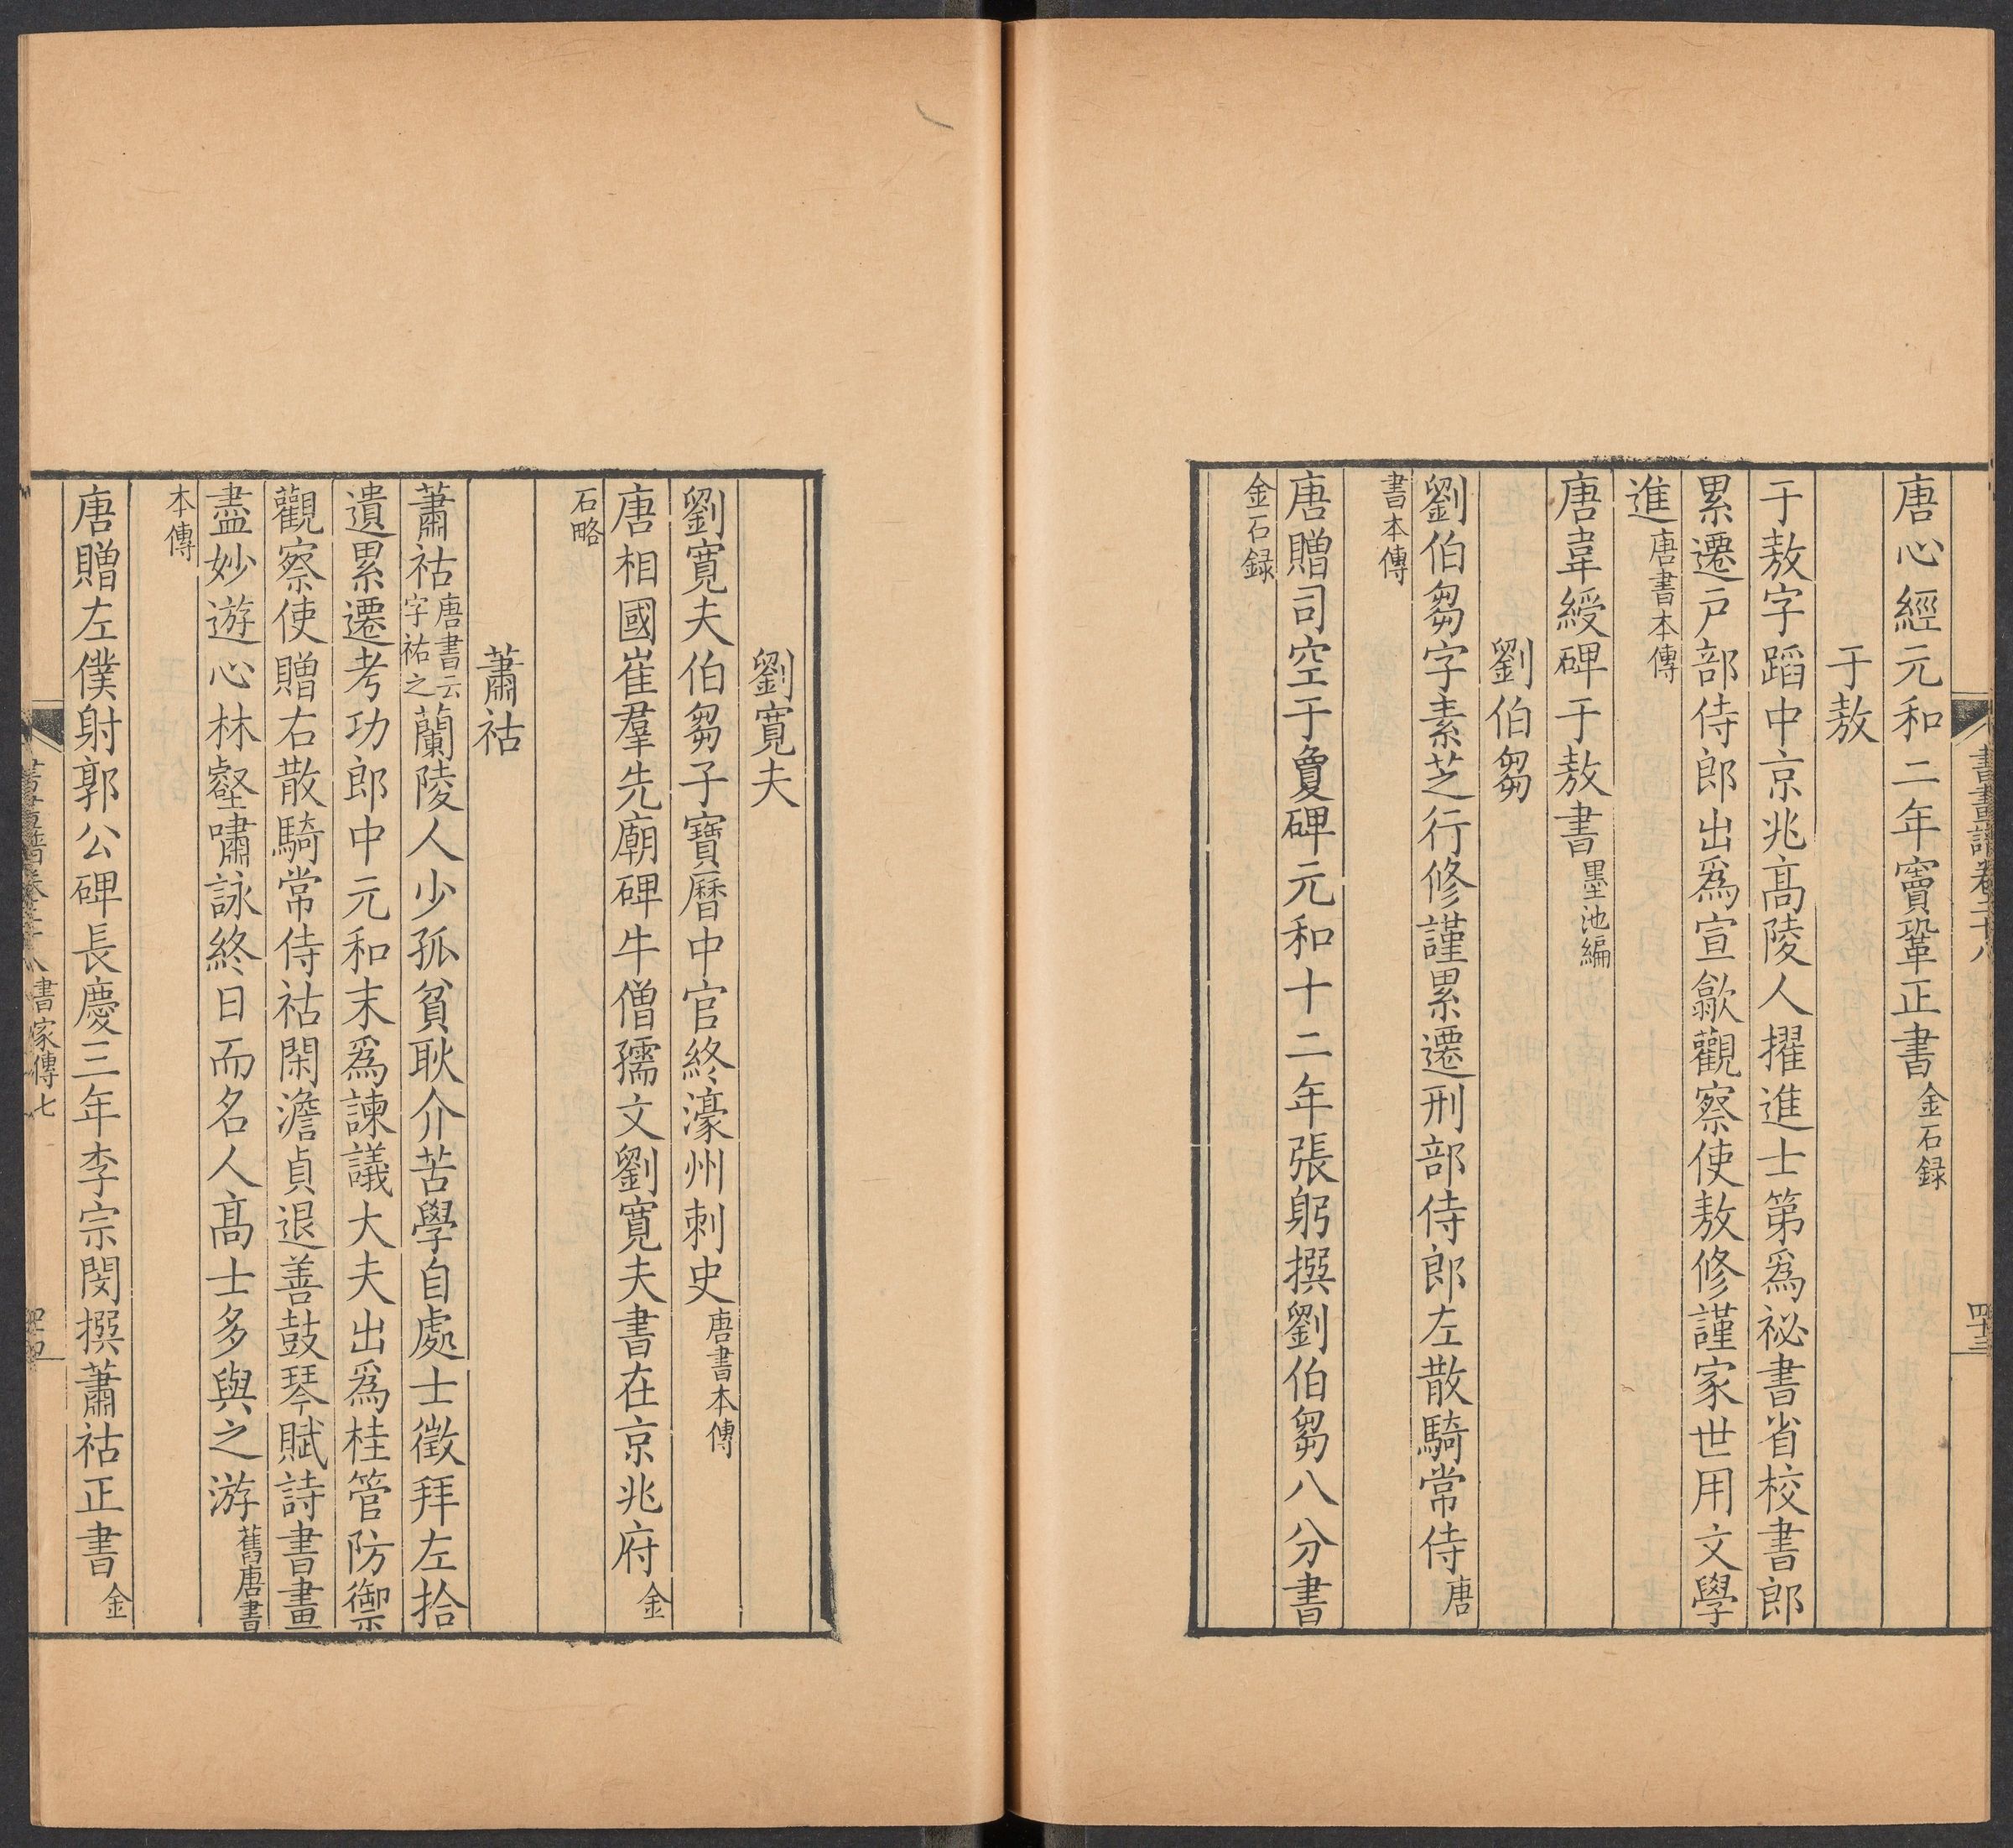 書畫譜卷二十八
四十三
唐心經元和二年竇鞏正書金石録
于敖
于敖字蹈中京兆高陵人擢進士第爲祕書省校書郎
累遷户部侍郎出爲宣歙觀察使敖修謹家世用文學
進唐書本傳
唐韋綬碑于敖書墨池編
劉伯芻
劉伯芻字素芝行修謹累遷刑部侍郎左散騎常侍唐
書本傳
唐贈司空于敻碑元和十二年張躬撰劉伯芻八分書
金石録
劉寛夫
劉寛夫伯芻子寶曆中官終濠州刺史唐書本傳
唐相國崔羣先廟碑牛僧孺文劉寛夫書在京兆府金
石略
蕭祜
蕭祜唐書云字祐之蘭陵人少孤貧耿介苦學自處士徵拜左拾
遺累遷考功郎中元和末爲諫議大夫出爲桂管防禦
觀察使贈右散騎常侍祜閑澹貞退善鼓琴賦詩書畫
盡妙遊心林壑嘯詠終日而名人高士多與之游舊唐書
本傳
唐贈左僕射郭公碑長慶三年李宗閔撰蕭祜正書金
書家傳七